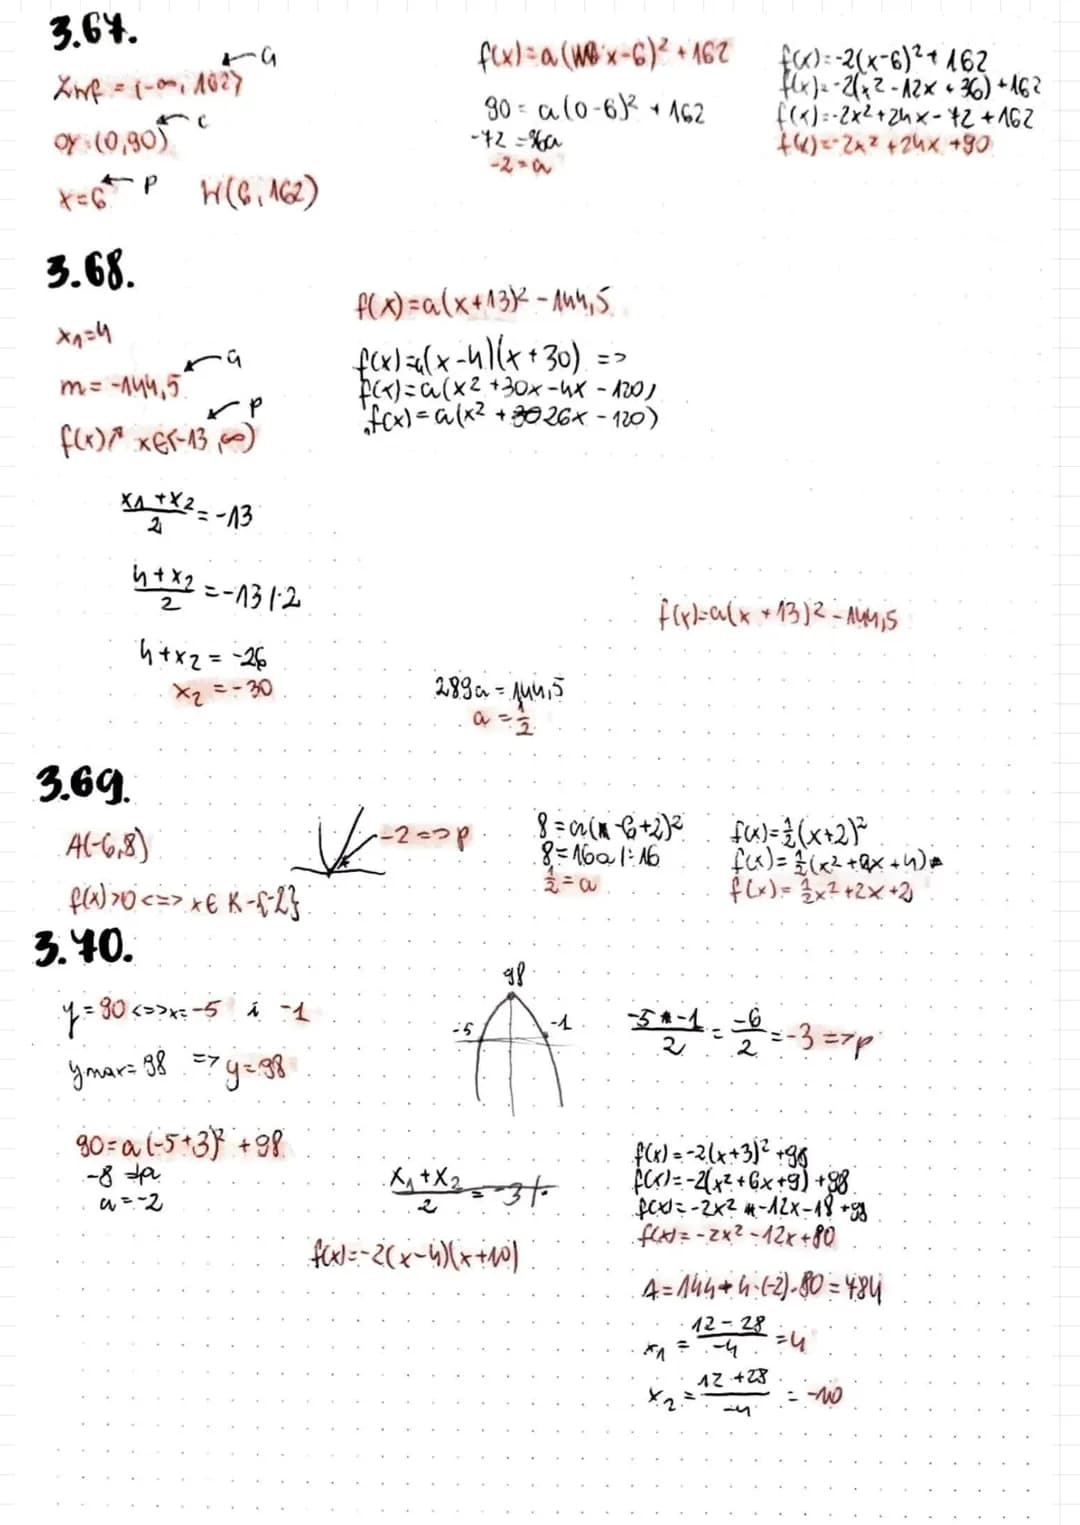 3.67.
Zwf = (-∞, 162⟩ ← q
oy: (0,90) ← c
x=6 ← p W(6, 162)
f(x)=a(x-6)² + 162
90 = a(0-6)² + 162
-72 = 36a
-2 = a
f(x)=-2(x-6)² + 162
f(x)=-2(x² - 12x + 36) + 162
f(x)=-2x² + 24x - 72 + 162
f(x)=-2x² + 24x + 90
3.68.
x₁=4
m = -144,5 ← q
f(x)↗ x∈⟨-13, ∞) ← p
f(x)=a(x+13)² - 144,5
f(x)=a(x-4)(x+30) =>
f(x)=a(x² + 30x - 4x - 120)
f(x)=a(x² + 26x - 120)
(x₁ + x₂)/2 = -13
(4 + x₂)/2 = -13 /·2
4 + x₂ = -26
x₂ = -30
f(x)=a(x + 13)² - 144,5
289a = 144,5
a = 1/2
3.69.
A(-6,8)
f(x)>0 <=> x∈ R-{-2}
-2 => p
8 = a(-6+2)²
8 = 16a /:16
1/2 = a
f(x)=1/2(x+2)²
f(x)= 1/2(x² + 4x + 4)
f(x)= 1/2x² + 2x + 2
3.70.
y = 90 <=> x = -5 i -1
ymax = 98 => y = 98
98
-5 -1
(-5 -1)/2 = -6/2 = -3 => p
90 = a(-5+3)² + 98
-8 = 4a
a = -2
(x₁ + x₂)/2 = -3 /·
f(x)=-2(x-4)(x+10)
f(x)=-2(x+3)² + 98
f(x)=-2(x² + 6x + 9) + 98
f(x)=-2x² - 12x - 18 + 98
f(x)=-2x² - 12x + 80
Δ = 144 + 4·(-2)·80 = 784
x₁ = (12 - 28)/-4 = 4
x₂ = (12 + 28)/-4 = -10